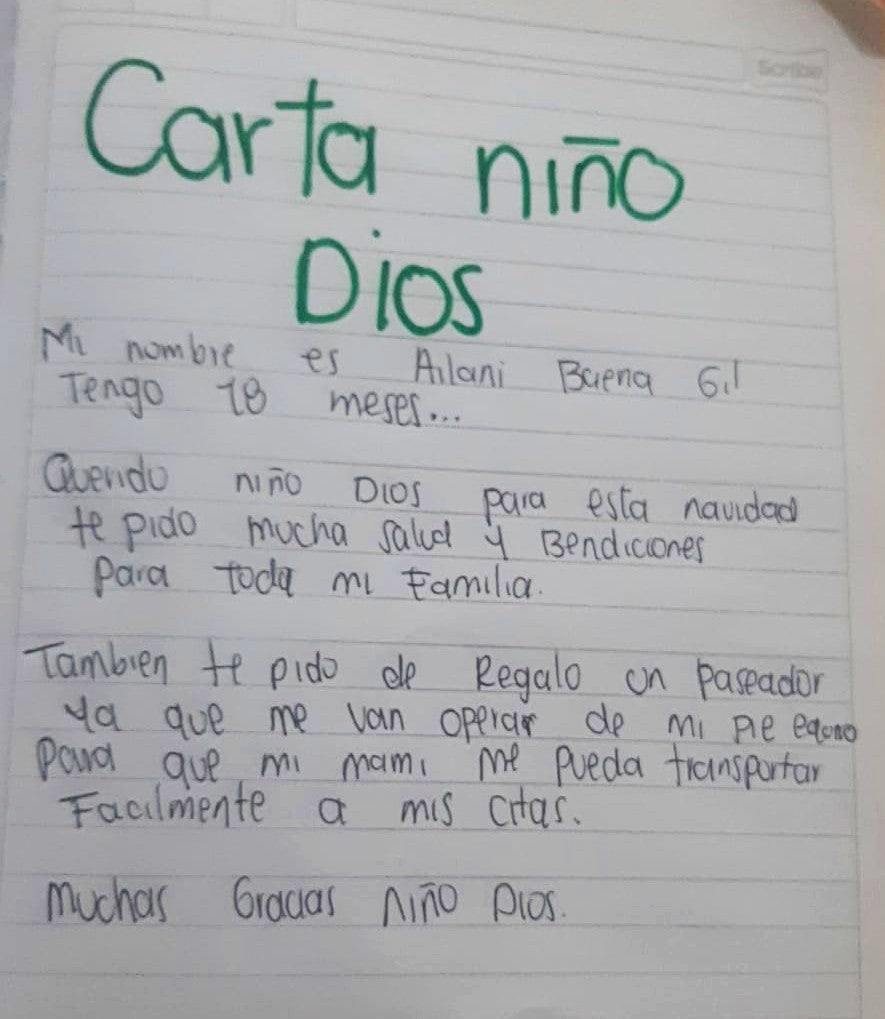 Scribe
Carta niño
Dios
Mi nombre es Ailani Baena Gil
Tengo 18 meses...
Querido niño Dios para esta navidad
te pido mucha salud y Bendiciones
Para toda mi Familia.
Tambien te pido de Regalo un paseador
ya que me van operar de mi pie equino
Para que mi mami me pueda transportar
Facilmente a mis citas.
Muchas Gracias niño Dios.